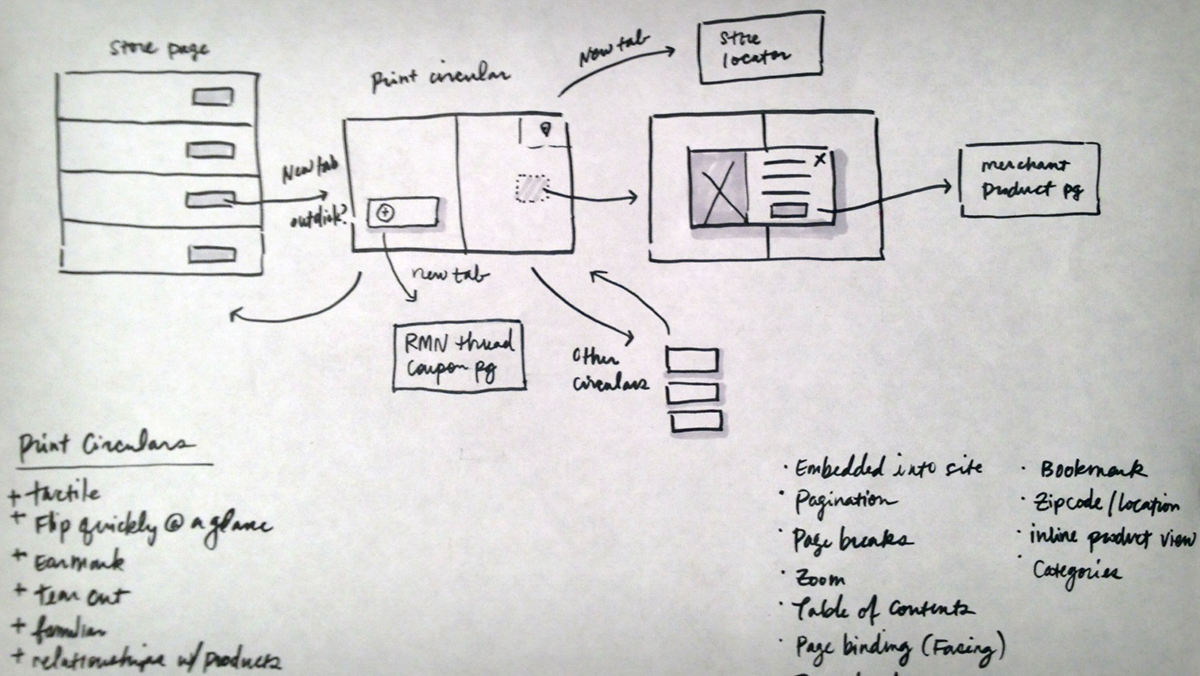 Store page
Print circular
New tab
Store
locator
New tab
outclick?
x
merchant
product pg
new tab
RMN thread
coupon pg
Other
circulars
Print Circulars
+ tactile
+ Flip quickly @ a glance
+ Earmark
+ tear out
+ familiar
+ relationships w/ products
· Embedded into site
· Pagination
· Page breaks
· Zoom
· Table of contents
· Page binding (Facing)
· Bookmark
· Zipcode / location
· inline product view
· Categories